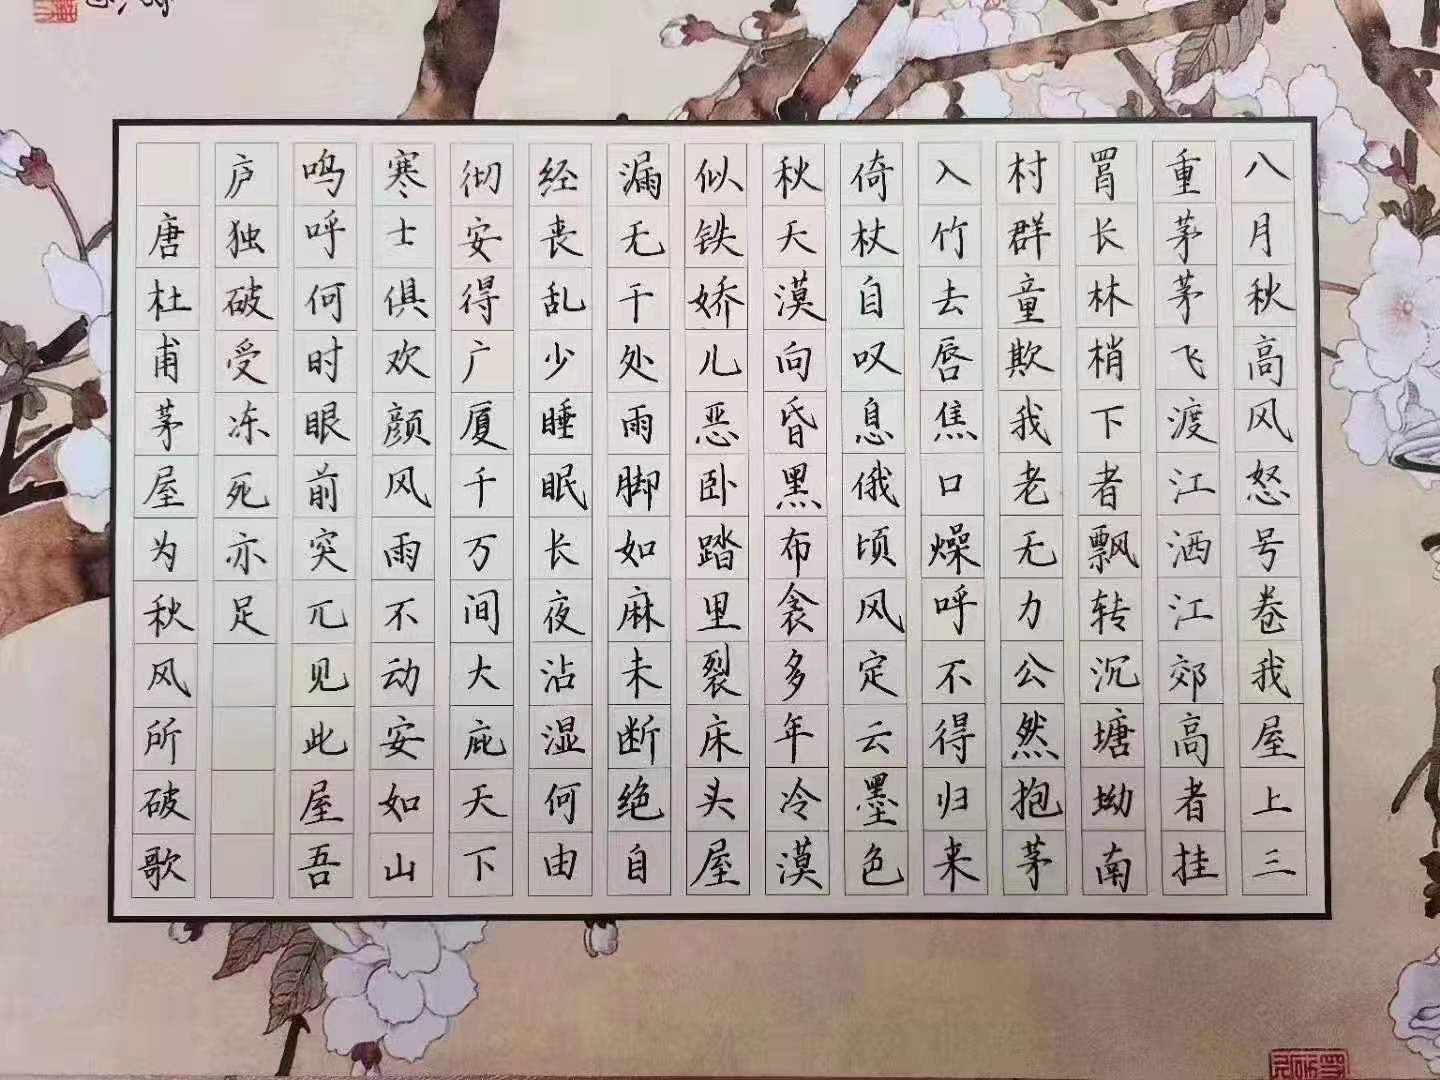 八月秋高风怒号卷我屋上三
重茅茅飞渡江洒江郊高者挂
罥长林梢下者飘转沉塘坳南
村群童欺我老无力公然抱茅
入竹去唇焦口燥呼不得归来
倚杖自叹息俄顷风定云墨色
秋天漠向昏黑布衾多年冷漠
似铁娇儿恶卧踏里裂床头屋
漏无干处雨脚如麻未断绝自
经丧乱少睡眠长夜沾湿何由
彻安得广厦千万间大庇天下
寒士俱欢颜风雨不动安如山
鸣呼何时眼前突兀见此屋吾
庐独破受冻死亦足
唐杜甫茅屋为秋风所破歌